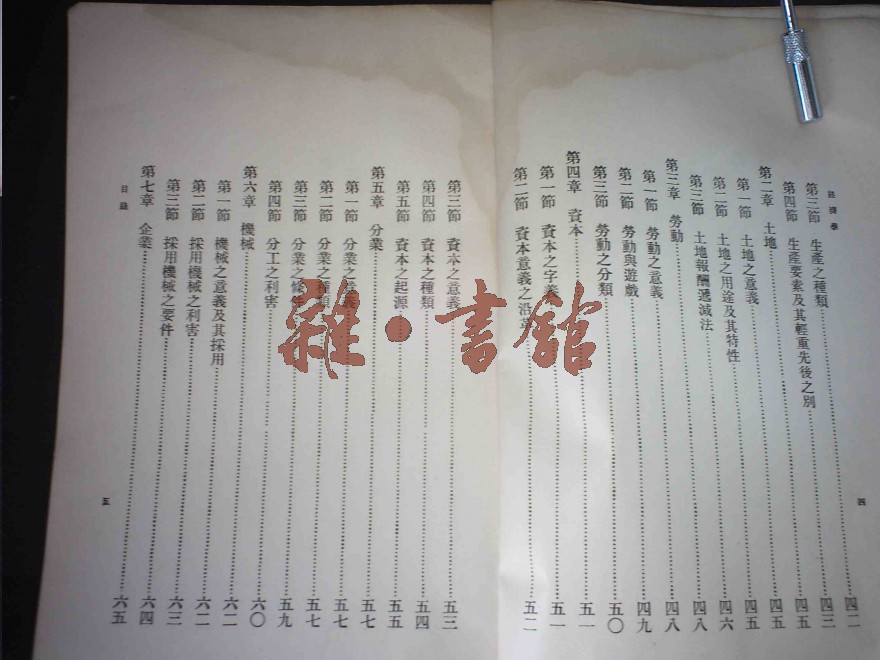 經濟學
第三節 生產之種類……四二
第四節 生產要素及其輕重先後之別……四三
第二章 土地……四五
第一節 土地之意義……四五
第二節 土地之用途及其特性……四五
第三節 土地報酬遞減法……四六
第三章 勞動……四八
第一節 勞動之意義……四八
第二節 勞動與遊戲……四九
第三節 勞動之分類……五〇
第四章 資本……五一
第一節 資本之字義……五一
第二節 資本意義之沿革……五二
四
第三節 資本之意義……五三
第四節 資本之種類……五四
第五節 資本之起源……五五
第五章 分業……五七
第一節 分業之意義……五七
第二節 分業之種類……五七
第三節 分業之條件……五九
第四節 分工之利害……六〇
第六章 機械……六二
第一節 機械之意義及其採用……六二
第二節 採用機械之利害……六三
第三節 採用機械之要件……六四
第七章 企業……六五
目錄
五
雜·書館